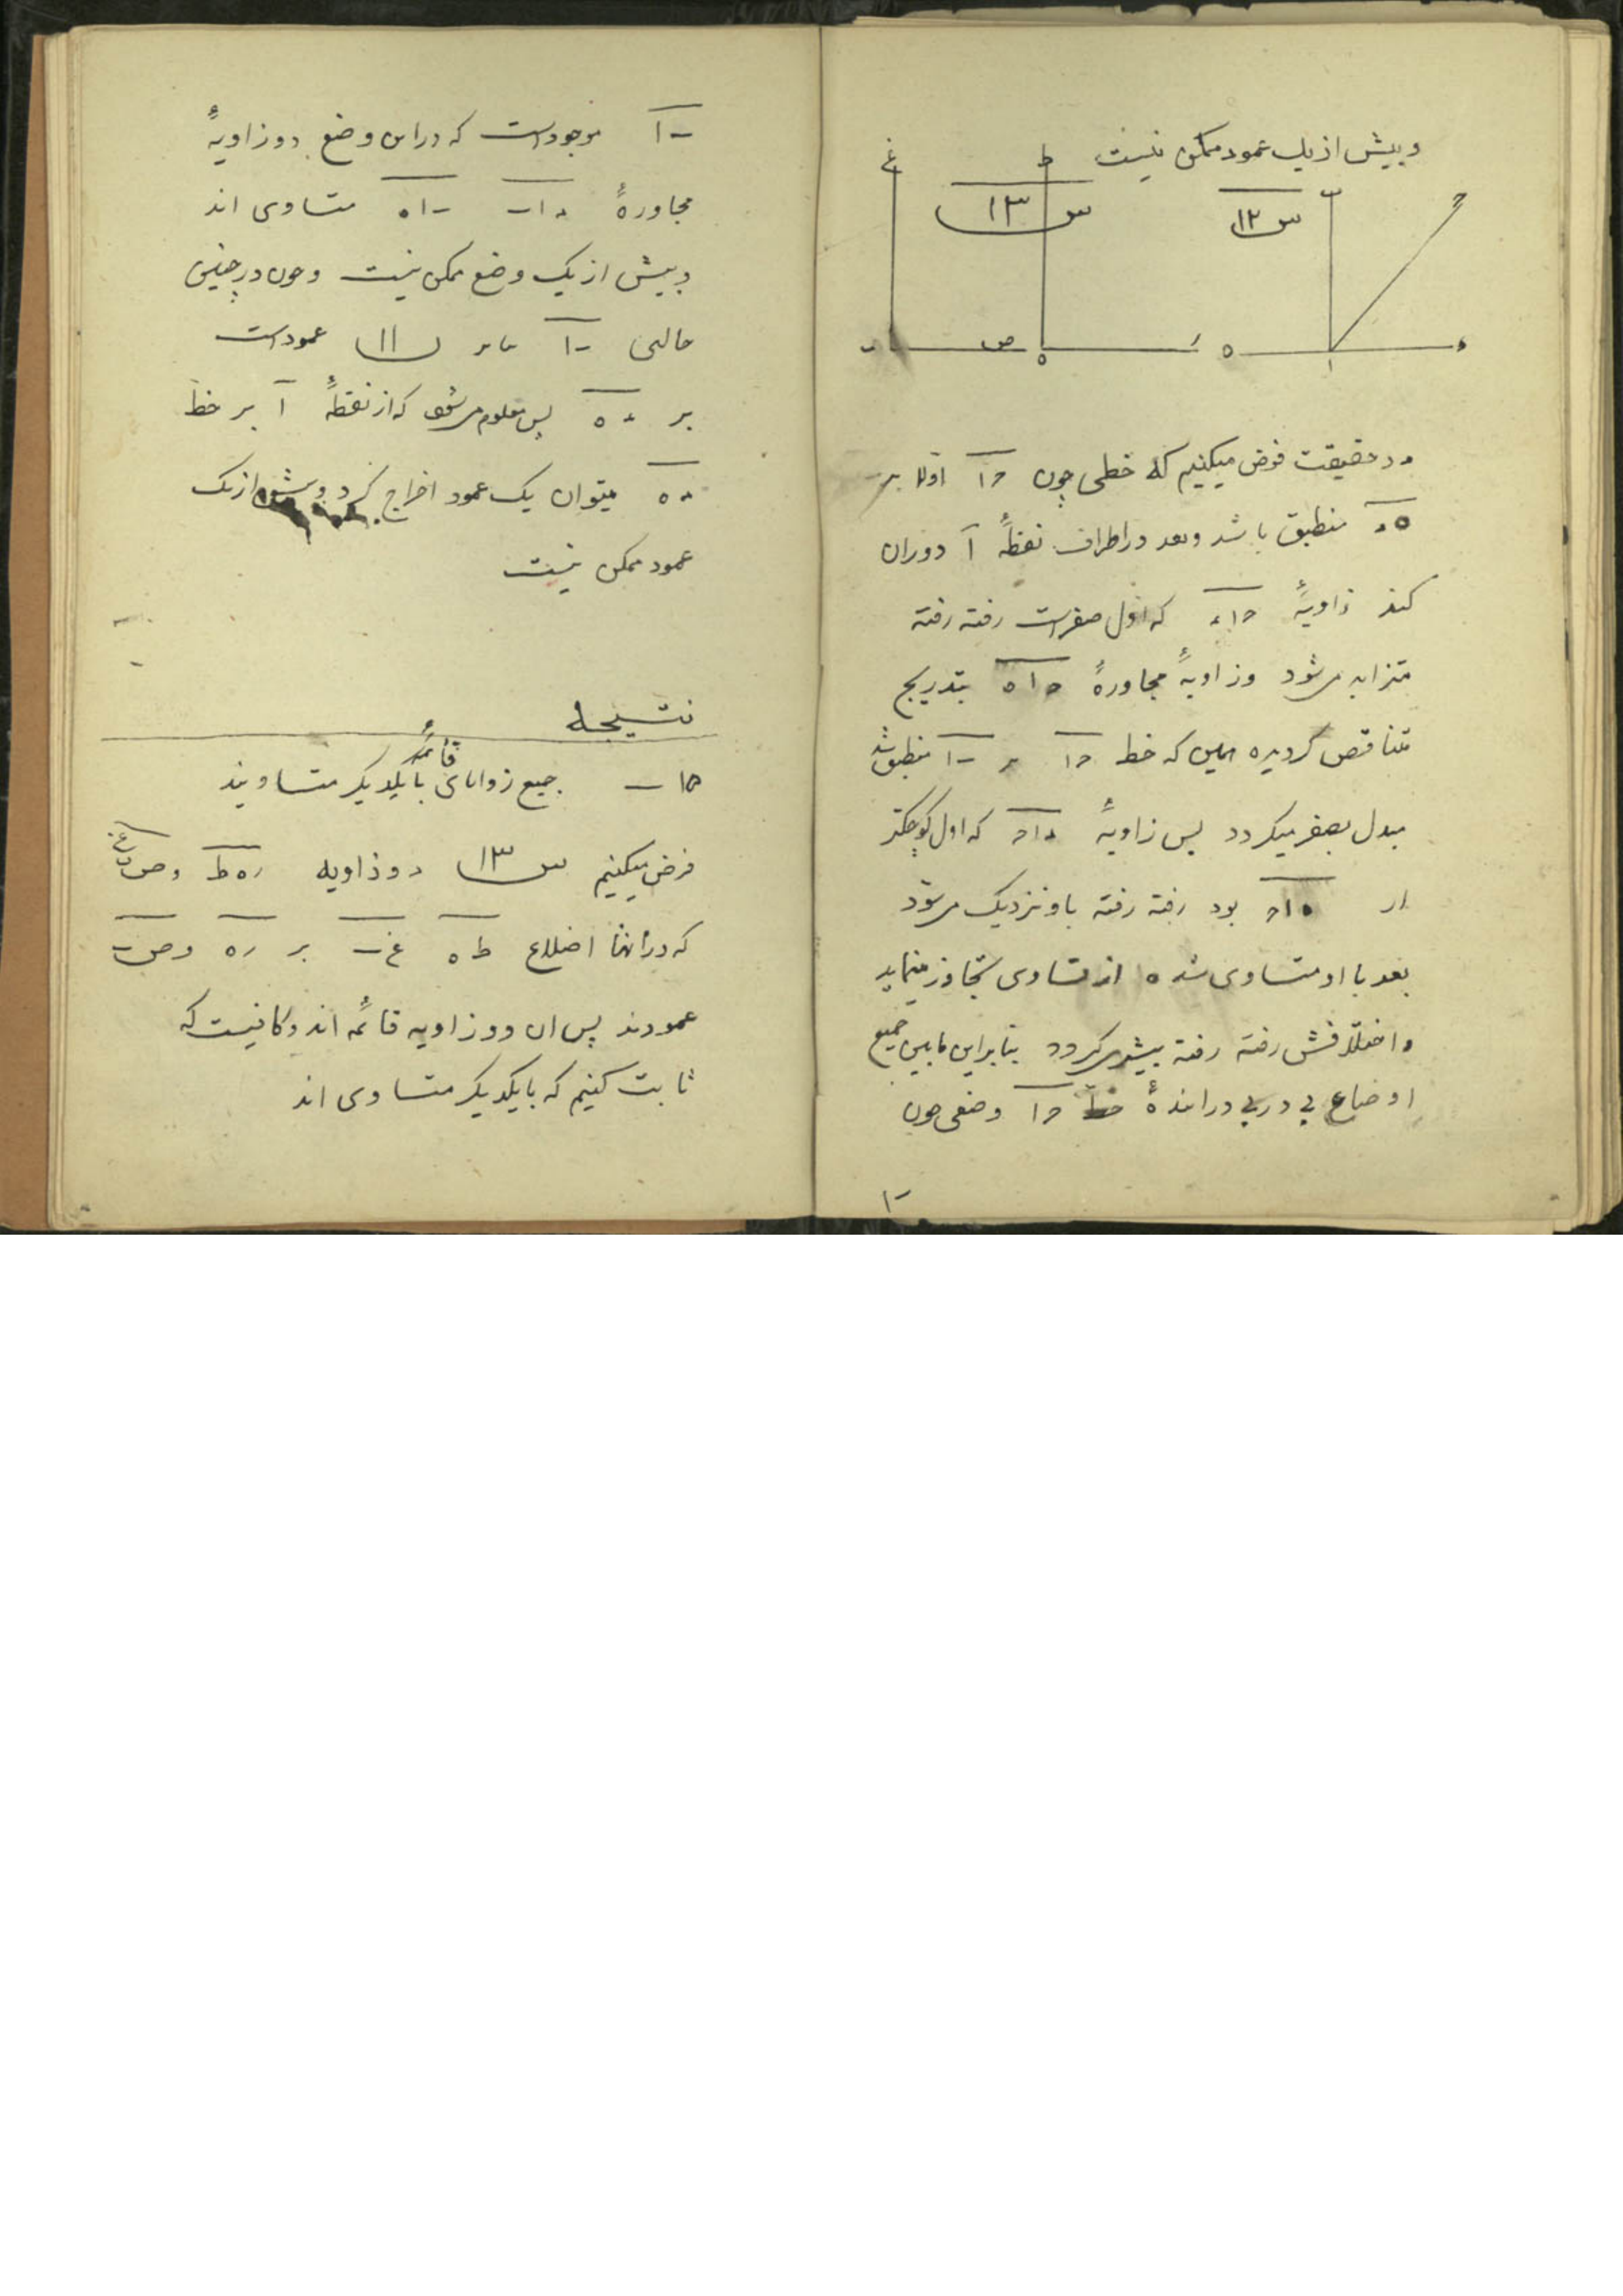 و بیش از یک عمود ممکن نیست
غ ط ب ح
س ۱۳ س ۱۲
ص ه ر ه ا د
در حقیقت فرض میکنیم که خطی چون حا اولا بر
ده منطبق باشد و بعد در اطراف نقطهٔ آ دوران
کند زاویهٔ حاد که اول صفر است رفته رفته
متزاید میشود و زاویهٔ مجاورهٔ حاه بتدریج
متناقص گردیده همین که خط حا بر منطبق شد
مبدل بصفر میگردد پس زاویهٔ داح که اول کوچکتر
از هاح بود رفته رفته باو نزدیک میشود
بعد با او متساوی شده از تساوی تجاوز مینماید
و اختلافش رفته رفته بیشتر میگردد بنابراین مابین جمیع
اوضاع پی در پی در امدهٔ خط حا وضعی چون
با
با موجود است که در این وضع دو زاویهٔ
مجاورهٔ داب باه متساوی اند
و بیش از یک وضع ممکن نیست و چون در چنین
حالتی با بنا بر ۱۱ عمود است
بر ده پس معلوم میشود که از نقطهٔ آ بر خط
ده میتوان یک عمود اخراج کرد و بیش از یک
عمود ممکن نیست
نتیجه
۱۵ — جمیع زوایای قائمه با یکدیگر متساویند
فرض میکنیم س ۱۳ دو زاویه ره ط و ص ب غ
که در انها اضلاع ط ه غ ب بر ر ه و ص ب
عمودند پس ان دو زاویه قائمه اند و کافیست که
ثابت کنیم که با یکدیگر متساوی اند